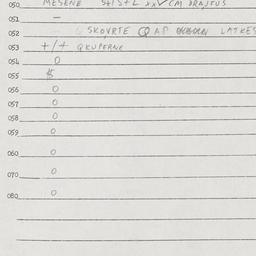 050 MESENE
051 –
052 SKOVRTE Q AP LATKES
053 +/+ QKUPERNE
054 0
055
056 0
057 0
058 0
059 0
060 0
070 0
080 0